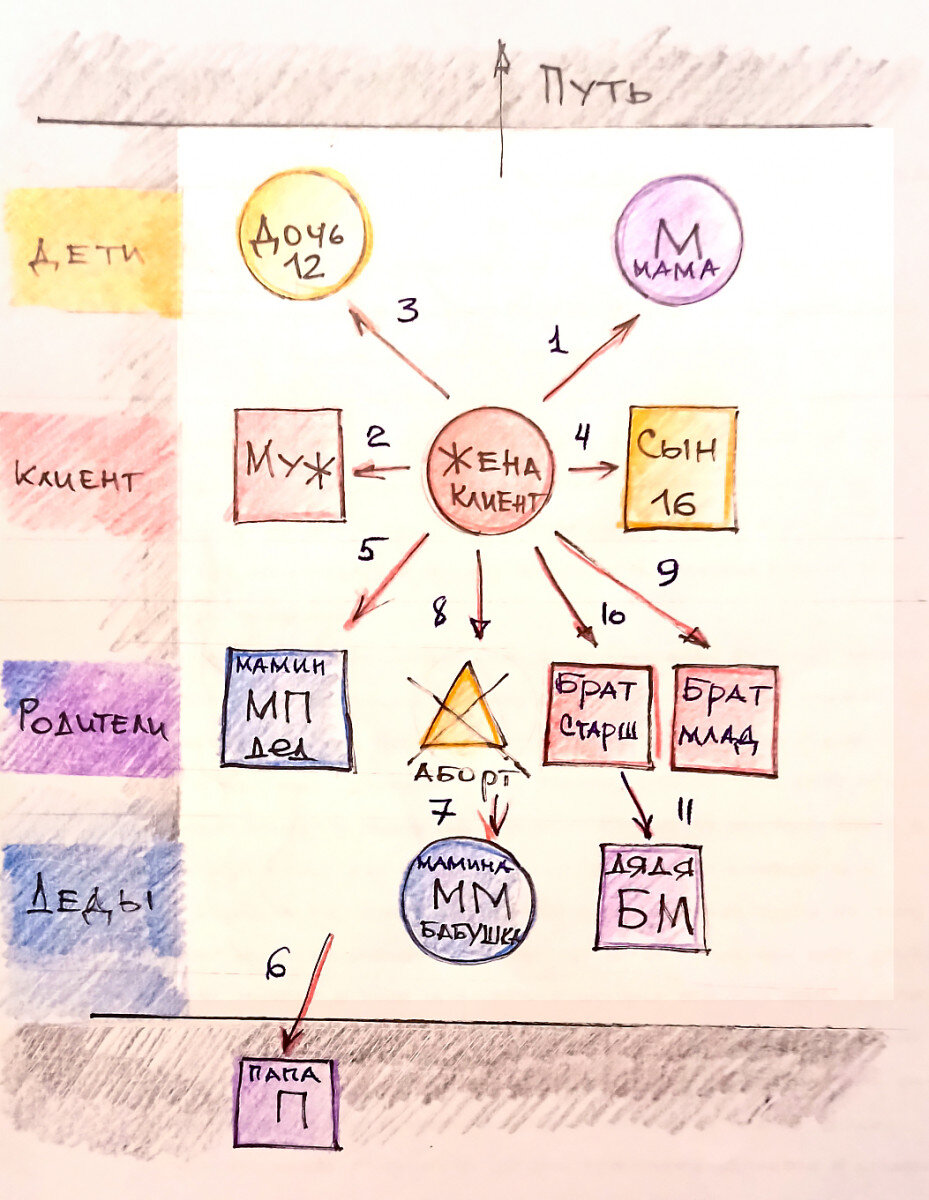 Путь
Дети
Дочь
12
М
мама
3
1
Клиент
Муж
2
Жена
клиент
4
Сын
16
5
8
10
9
Родители
мамин
МП
дед
аборт
Брат
старш
Брат
млад
7
11
Деды
мамина
ММ
бабушка
дядя
БМ
6
папа
П